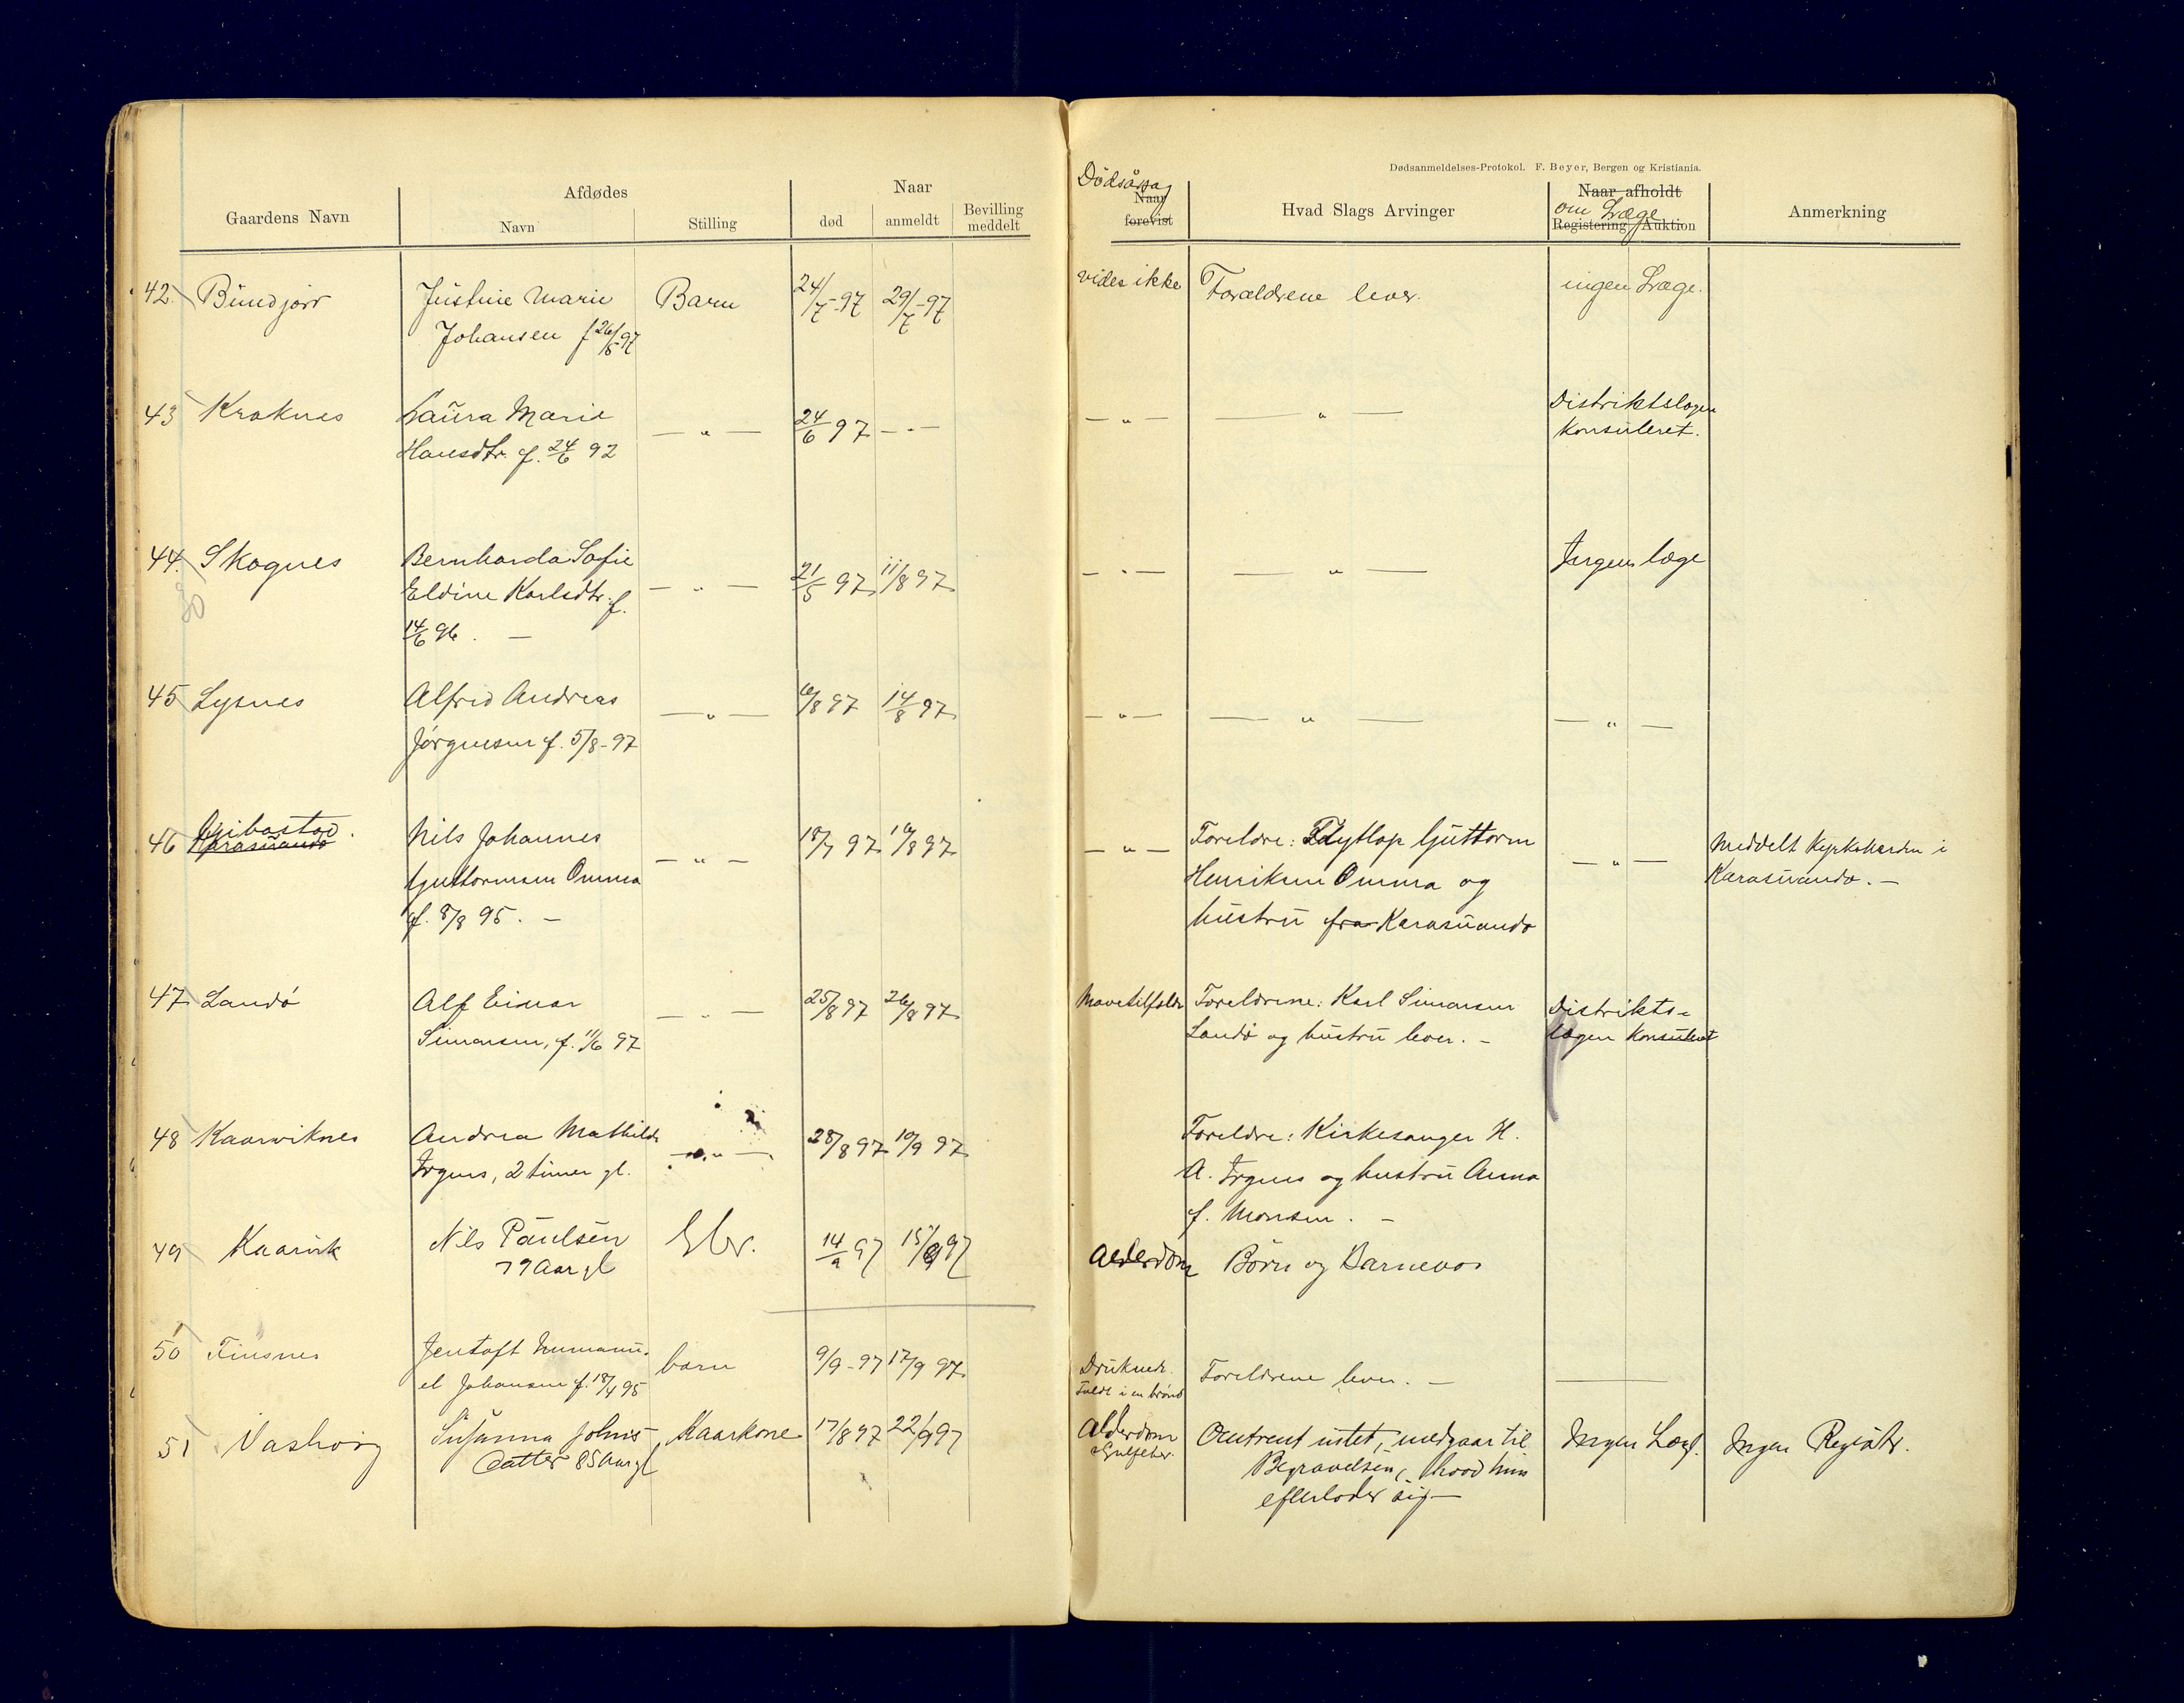 Dødsanmeldelses-Protokol. F. Beyer, Bergen og Kristiania.
Gaardens Navn
Afdødes
Navn
Stilling
Naar
død
anmeldt
Bevilling
meddelt
Dödsårsag
Naar
forevist
Hvad Slags Arvinger
Naar afholdt
om Læge
Registering Auktion
Anmerkning
42. Bundjorr Justine Marie Barn 24/7-97 29/7-97 vides ikke Forældrene lever. ingen Læge.
Johansen f 26/5 97
43 Kraknes Laura Marie — " — 24/6 97 — " — — " — — " — Distriktslægen
Hansdtr. f. 24/6 92 Konsuleret.
44. Skognes Bernharda Sofie — " — 21/5 97 11/8 97 — " — — " — Ingen læge
Eldine Karlsdtr. f.
14/6 96. —
45 Lysnes Alfred Andreas — " — 6/8 97 14/8 97 — " — — " — — " —
Jörgensen f. 5/8-97
46 Gibostad. Nils Johannes — " — 18/7 97 16/8 97 — " — Foreldre: Flytlap Guttorm — " — Meddelt Kyrkoherden i
Karasuando Guttormsen Omma Henriksen Omma og Karasuando. —
f. 8/8 95. — hustru fra Karasuando
47 Landö Alf Einar — " — 25/8 97 26/8 97 Mavetilfelde Foreldrene: Karl Simonsen Distrikts-
Simonsen, f. 11/6 97 Landö og hustru lever. — lægen Konsuleret
48 Kaarviknes Andrea Mathilde — " — 28/8 97 10/9 97 Foreldre: Kirkesanger H.
Irgens, 2 timer gl. A. Irgens og hustru Anna
f. Monsen. —
49 Kaarvik Nils Paulsen Gbr. 14/9 97 15/9 97 Alderdom Børn og Barnebos
79 Aar gl
50 Finsnes Jentoft Immanu- barn 9/9-97 17/9 97 Druknede. Foreldrene lever. —
el Johansen f. 18/4 95 Faldt i en brönd
51 Vashaug Susanna Johns- Kaarkone 17/8 97 22/9 97 Alderdom Omtrent intet, medgaar til Ingen Læge. Ingen Registr.
datter 85 Aar gl Begravelsen, hvad hun
efterlader sig —